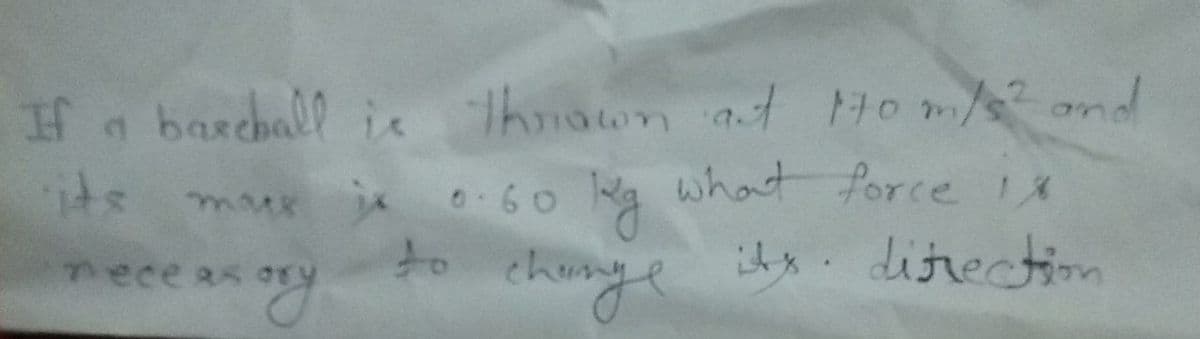 If a baseball is Thrown at 170 m/s² and
its mass is 0.60 kg what force is
neceasory to change its. direction